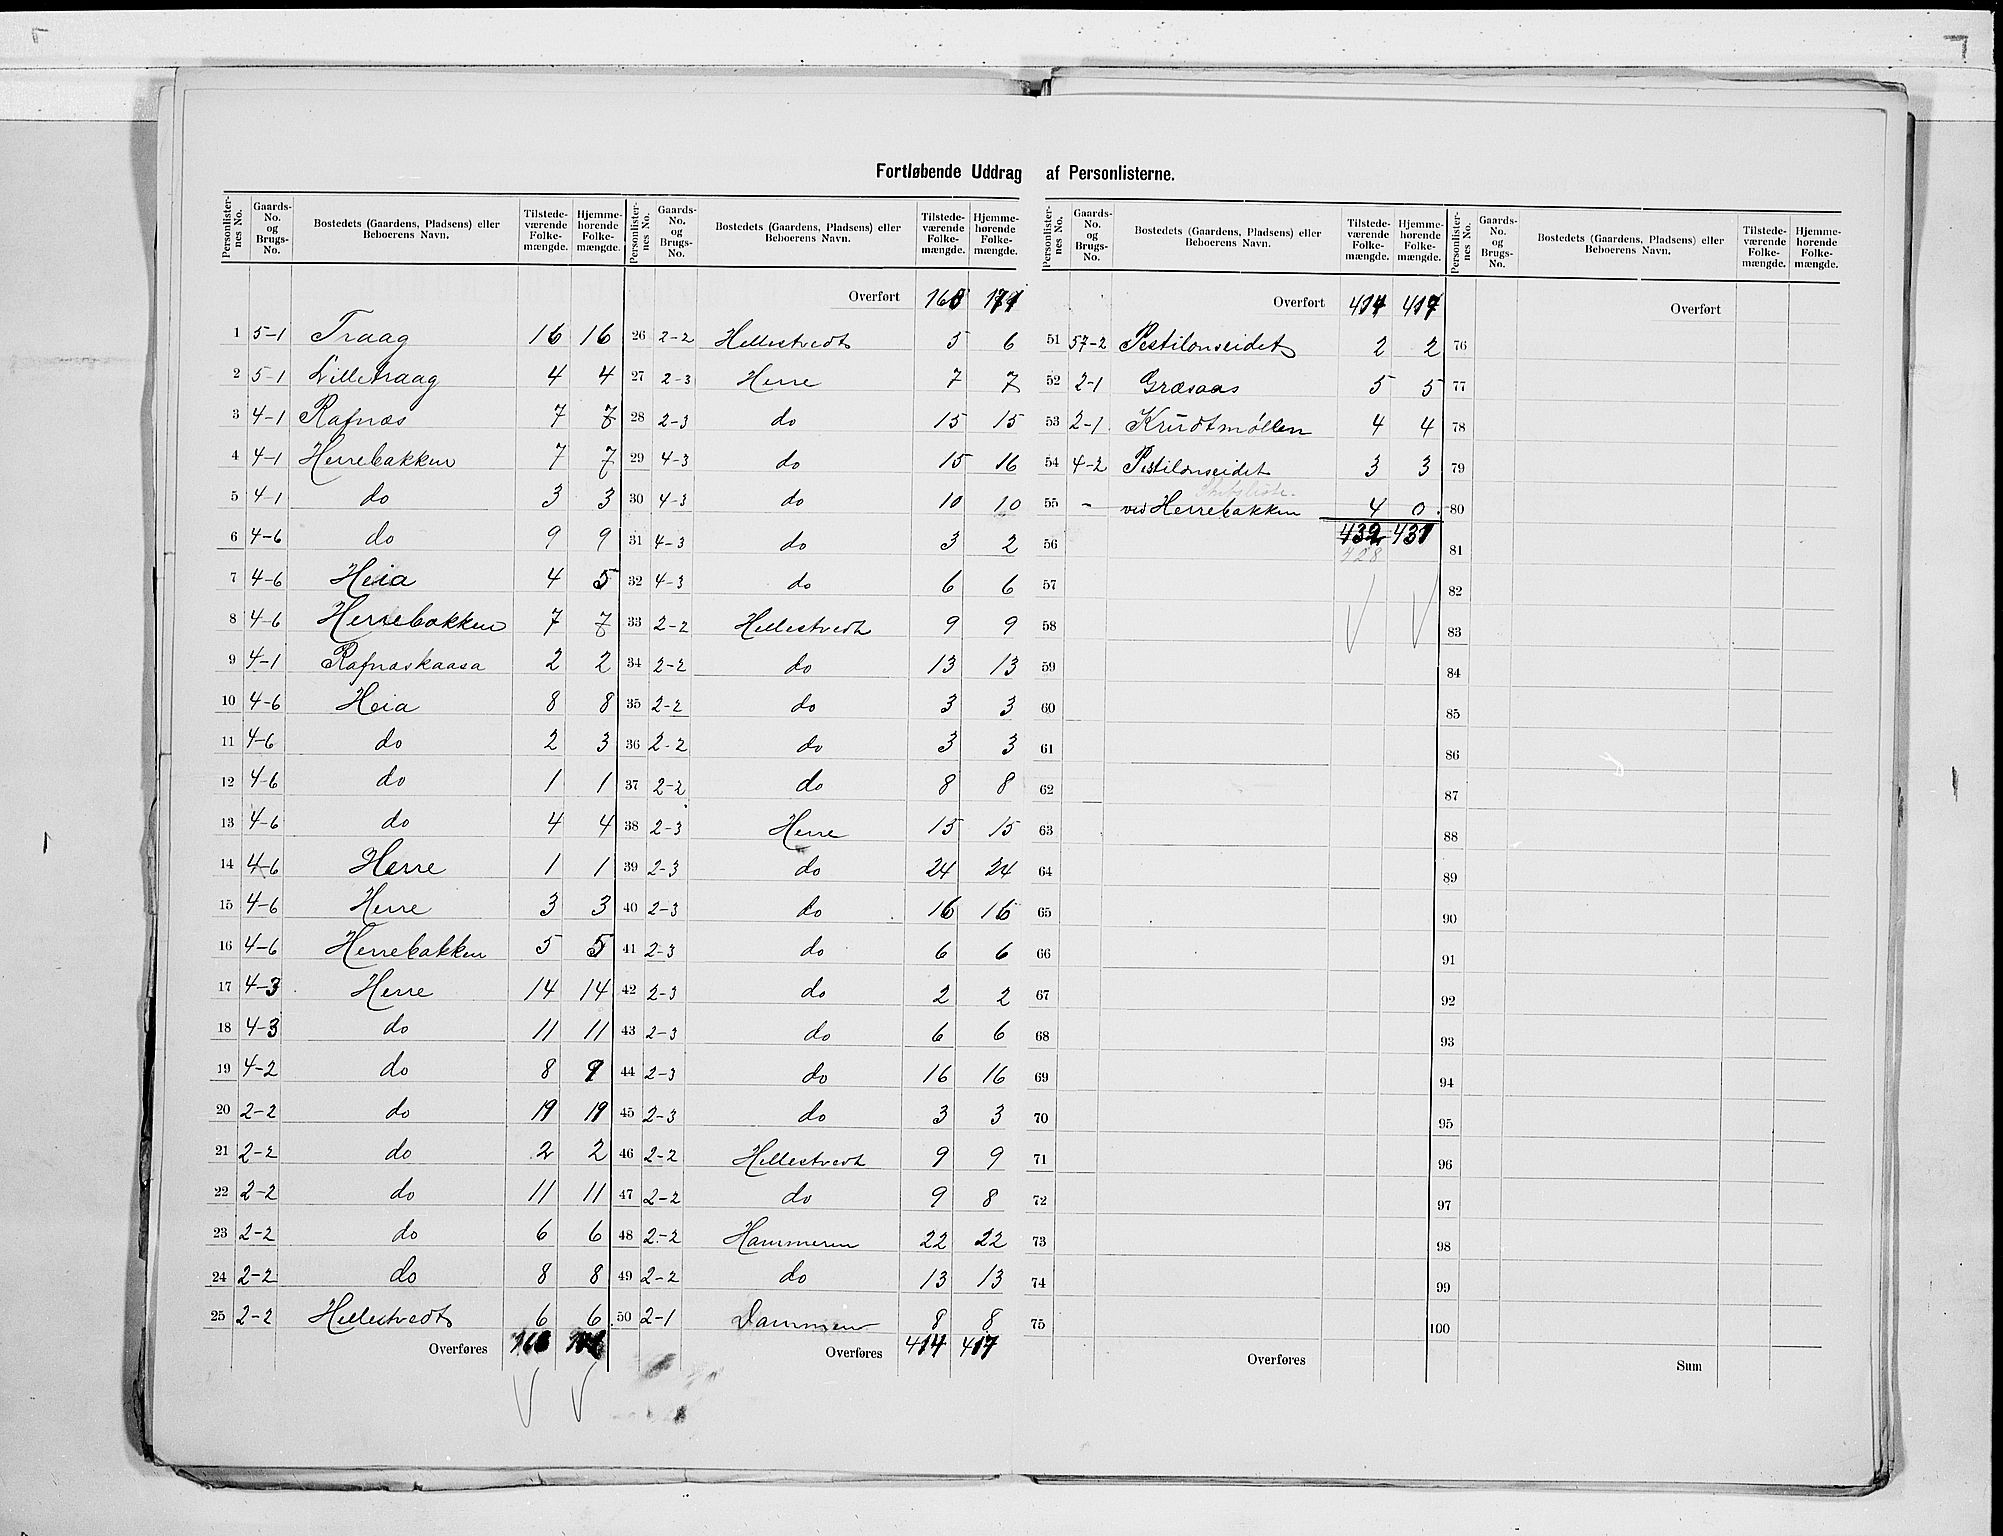 Fortløbende Uddrag af Personlisterne.
Personlister-nes No. | Gaards-No. og Brugs-No. | Bostedets (Gaardens, Pladsens) eller Beboerens Navn. | Tilstede-værende Folke-mængde. | Hjemme-hørende Folke-mængde.
1 5-1 Traag 16 16
2 5-1 Lilletraag 4 4
3 4-1 Rafnæs 7 7
4 4-1 Herrebakken 7 7
5 4-1 do 3 3
6 4-6 do 9 9
7 4-6 Heia 4 5
8 4-6 Herrebakken 7 7
9 4-1 Rafnæskaasa 2 2
10 4-6 Heia 8 8
11 4-6 do 2 3
12 4-6 do 1 1
13 4-6 do 4 4
14 4-6 Herre 1 1
15 4-6 Herre 3 3
16 4-6 Herrebakken 5 5
17 4-3 Herre 14 14
18 4-3 do 11 11
19 4-2 do 8 9
20 2-2 do 19 19
21 2-2 do 2 2
22 2-2 do 11 11
23 2-2 do 6 6
24 2-2 do 8 8
25 2-2 Hellestvedt 6 6
Overføres
Personlister-nes No. | Gaards-No. og Brugs-No. | Bostedets (Gaardens, Pladsens) eller Beboerens Navn. | Tilstede-værende Folke-mængde. | Hjemme-hørende Folke-mængde.
Overført 168 171
26 2-2 Hellestvedt 5 6
27 2-3 Herre 7 7
28 2-3 do 15 15
29 4-3 do 15 16
30 4-3 do 10 10
31 4-3 do 3 2
32 4-3 do 6 6
33 2-2 Hellestvedt 9 9
34 2-2 do 13 13
35 2-2 do 3 3
36 2-2 do 3 3
37 2-2 do 8 8
38 2-3 Herre 15 15
39 2-3 do 24 24
40 2-3 do 16 16
41 2-3 do 6 6
42 2-3 do 2 2
43 2-3 do 6 6
44 2-3 do 16 16
45 2-3 do 3 3
46 2-2 Hellestvedt 9 9
47 2-2 do 9 8
48 2-2 Hammeren 22 22
49 2-2 do 13 13
50 2-1 Dammen 8 8
Overføres 414 417
Personlister-nes No. | Gaards-No. og Brugs-No. | Bostedets (Gaardens, Pladsens) eller Beboerens Navn. | Tilstede-værende Folke-mængde. | Hjemme-hørende Folke-mængde.
Overført 414 417
51 57-2 Pestilonseidet 2 2
52 2-1 Græsaas 5 5
53 2-1 Krudtmøllen 4 4
54 4-2 Pestilonseidet 3 3
Skibsliste.
55 - ved Herrebakken 4 0
56 432 431
428
57
58
59
60
61
62
63
64
65
66
67
68
69
70
71
72
73
74
75
Overføres
Personlister-nes No. | Gaards-No. og Brugs-No. | Bostedets (Gaardens, Pladsens) eller Beboerens Navn. | Tilstede-værende Folke-mængde. | Hjemme-hørende Folke-mængde.
Overført
76
77
78
79
80
81
82
83
84
85
86
87
88
89
90
91
92
93
94
95
96
97
98
99
100
Sum